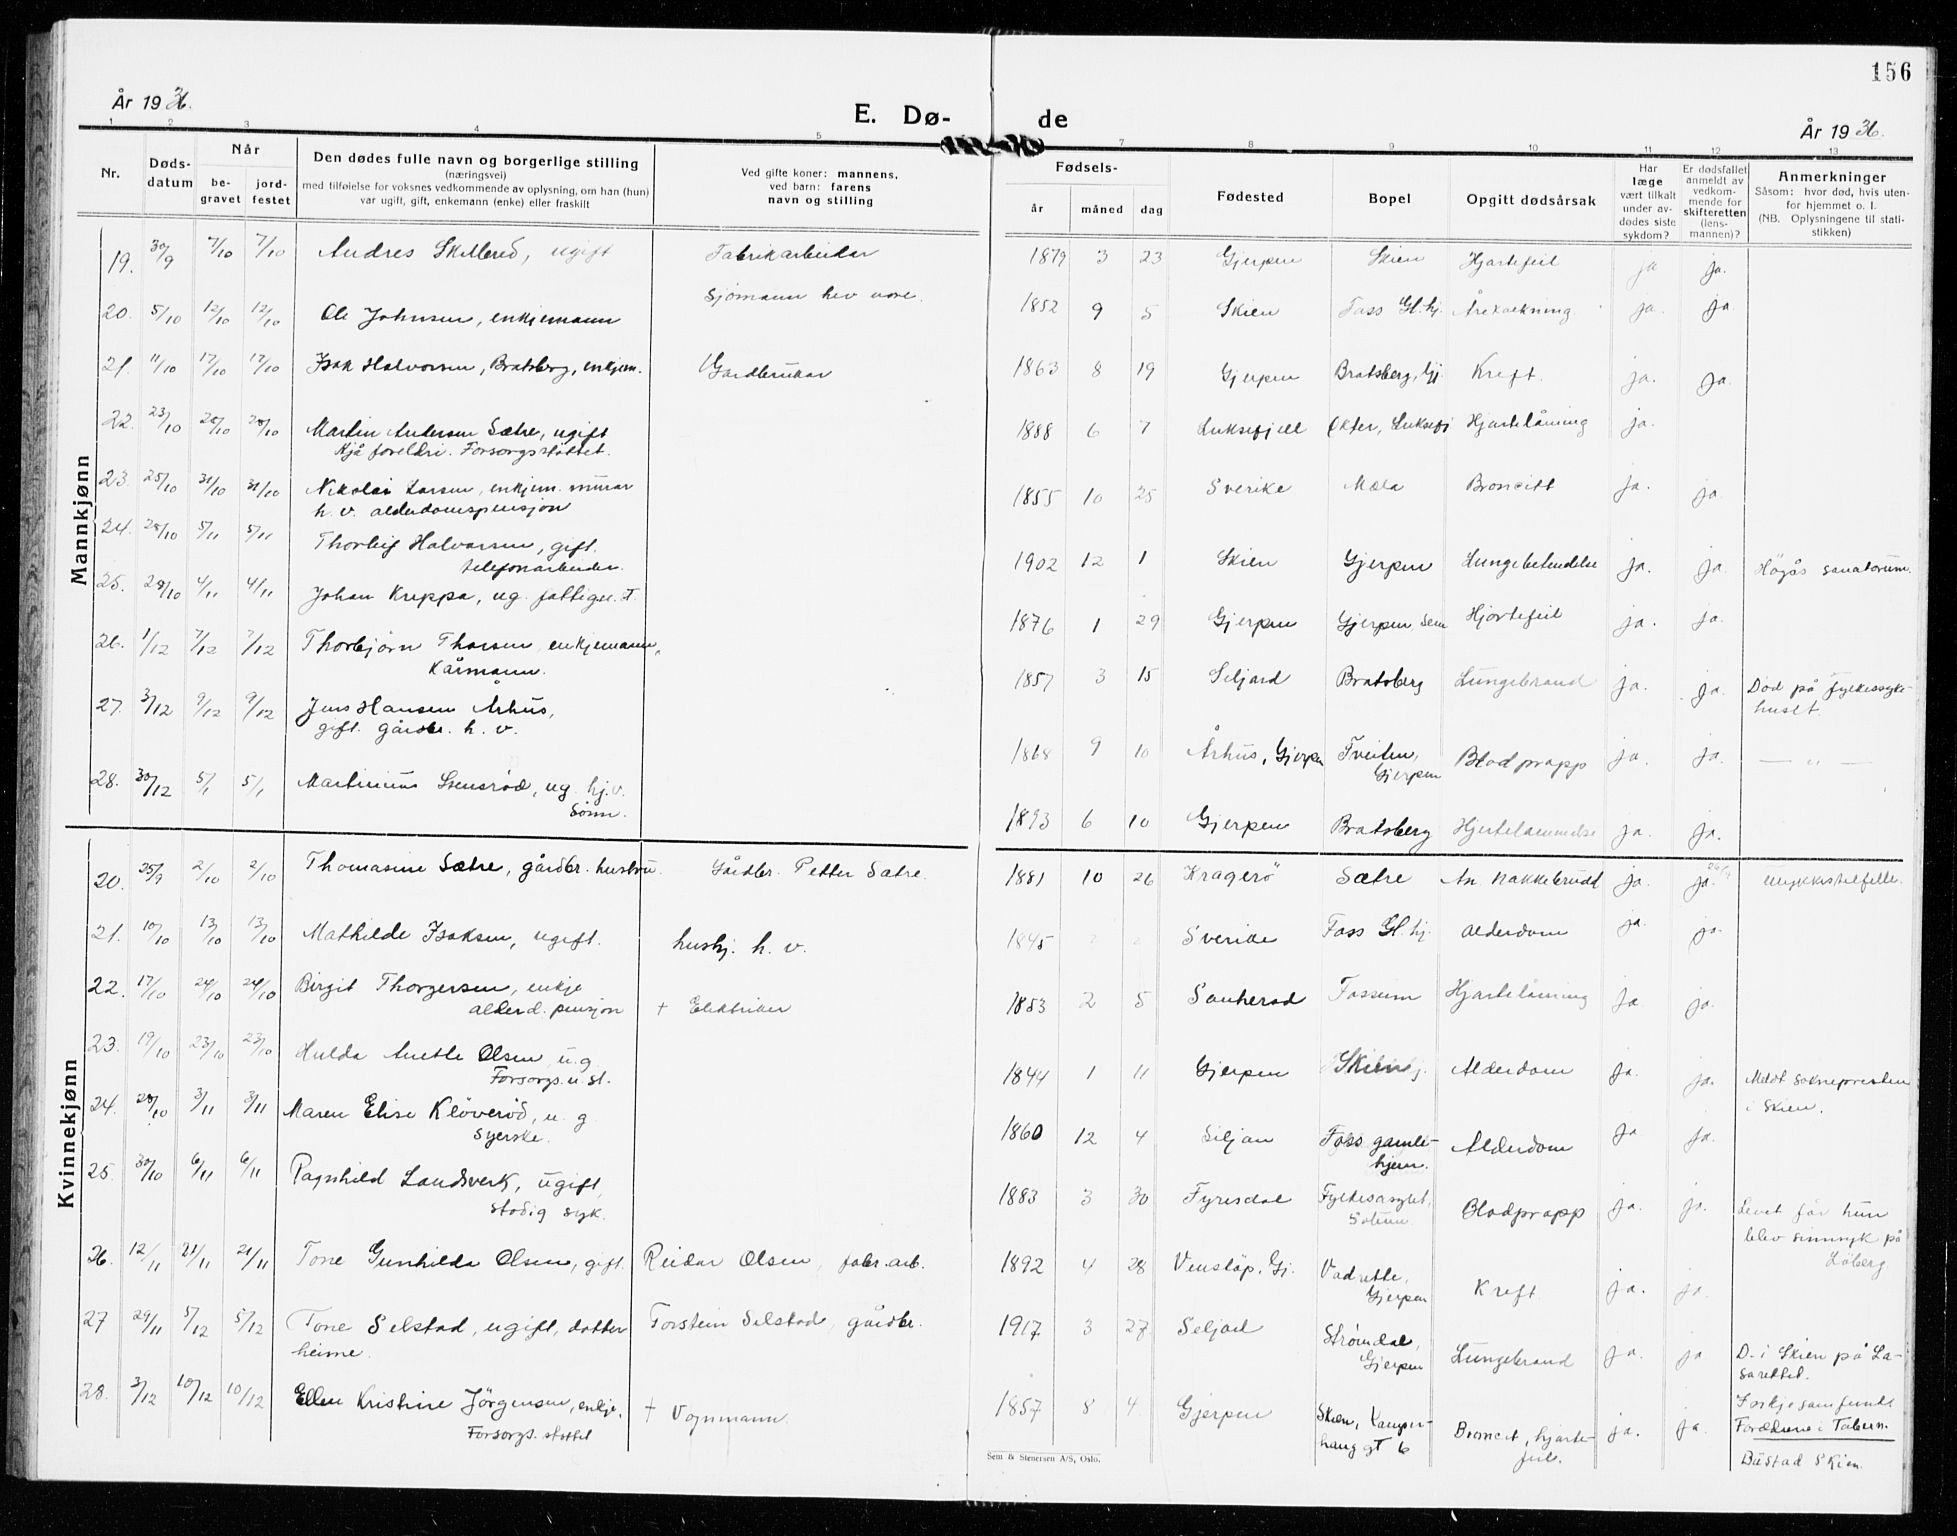 156
År 1936.
E. Dø-
de
År 1936.
1 2 3 4 5 7 8 9 10 11 12 13
Nr.
Døds-
datum
Når
be-
gravet
jord-
festet
Den dødes fulle navn og borgerlige stilling
(næringsvei)
med tilføielse for voksnes vedkommende av oplysning, om han (hun)
var ugift, gift, enkemann (enke) eller fraskilt
Ved gifte koner: mannens,
ved barn: farens
navn og stilling
Fødsels-
år måned dag
Fødested
Bopel
Opgitt dødsårsak
Har
læge
vært tilkalt
under av-
dødes siste
sykdom?
Er dødsfallet
anmeldt av
vedkom-
mende for
skifteretten
(lens-
mannen)?
Anmerkninger
Såsom: hvor død, hvis uten-
for hjemmet o. l.
(NB. Oplysningene til stati-
stikken)
Mannkjønn
19. 30/9 7/10 7/10 Andres Skilbred, ugift Fabrikarbeidar 1879 3 23 Gjerpen Skien Hjartefeil ja ja.
sjømann hev vore.
20. 5/10 12/10 12/10 Ole Johnsen, enkjemann 1852 9 5 Skien Foss Gl.hj. Årexalkning ja. ja.
21. 11/10 17/10 17/10 Isak Halvorsen, Bratsberg, enkjem. Gardbrukar 1863 8 19 Gjerpen Bratsberg, Gj. Kreft. ja. ja.
22. 23/10 28/10 28/10 Martin Andersen Sætre, ugift 1888 6 7 Luksefjell Økter, Luksefj Hjartelåming ja.
Hjå foreldre. Forsorgsstøttet.
23. 25/10 31/10 31/10 Nikolai Larsen, enkjem. murar 1855 10 25 Sverike Mæla Broncitt ja. ja.
h. v. alderdomspensjon
24. 28/10 5/11 5/11 Thorleif Halvorsen, gift. 1902 12 1 Skien Gjerpen Lungebetendelse ja. ja. Högås sanatorium.
telefonarbeider.
25. 28/10 4/11 4/11 Johan Kreppa, ug. fattigu.st. 1876 1 29 Gjerpen Gjerpen, Sem Hjortefeil ja. ja.
26. 1/12 7/12 7/12 Thorbjörn Thorsen enkjemann, 1857 3 15 Siljord Bratsberg Lungebrand ja. ja. Död på fylkessyke-
Kårmann. huset.
27. 3/12 9/12 9/12 Jens Hansen Århus, 1868 9 10 Århus, Gjerpen Tveiten, Blodpropp ja. ja. — „ —
gift. gårdbr. h. v. Gjerpen
28. 30/12 5/1 5/1 Martinius Stensrød, ug. hj.v. 1893 6 10 Gjerpen Bratsberg Hjertelammelse ja. ja.
Sönn.
Kvinnekjønn
20. 25/9 2/10 2/10 Thomasine Sætre, gårdbr. hustru. Gårdbr. Petter Sætre. 1881 10 26 Kragerö Sætre An. Nakkebrudd ja. ja. 26/9 ulykkestilfelle.
21. 10/10 13/10 13/10 Mathilde Isaksen, ugift. hushj. h. v. 1845 2 2 Sverike Foss Gl. hj. Alderdom ja. ja.
22. 17/10 24/10 24/10 Birgit Thorgersen, enkje + Elektriker 1853 2 5 Sauherad Fossum Hjartelåming ja ja.
alderd. pensjon
23. 19/10 23/10 23/10 Hulda Anette Olsen, u.g 1844 1 11 Gjerpen Skien Alderdom ja. ja. Meldt soknepresten
Forsorgs.u.st. i Skien.
24. 28/10 3/11 3/11 Maren Elise Klöveröd, u. g 1860 12 4 Siljan Foss gamle- Alderdom ja ja.
syerske. hjem.
25. 30/10 6/11 6/11 Ragnhild Landsverk, ugift, 1883 3 30 Fyresdal Fylkesasylet, Blodpropp ja. ja. Levet før hun
stadig syk. Solum. blev sinnsyk på
Löberg
26. 12/11 21/11 21/11 Tone Gunhilda Olsen, gift. Reidar Olsen, fabr.arb. 1892 4 28 Venstöp, Gj. Vadrette, Kreft ja. ja.
Gjerpen
27 29/11 5/12 5/12 Tone Selstad, ugift, datter Torstein Selstad, gårdbr. 1917 3 27 Seljord Strömdal, Lungebrand ja. ja D. i Skien på La-
heime. Gjerpen sarettet.
28. 3/12 10/12 10/12 Ellen Kristine Jörgensen, enkje, + Vognmann. 1857 8 4 Gjerpen Skien, Kamper- Broncit, hjarte- ja. ja.
Forsorgs. støttet haug gt 6 feil.
Foreldrene i Tabern.
Bustad Skien.
Sem & Stenersen A/S, Oslo.